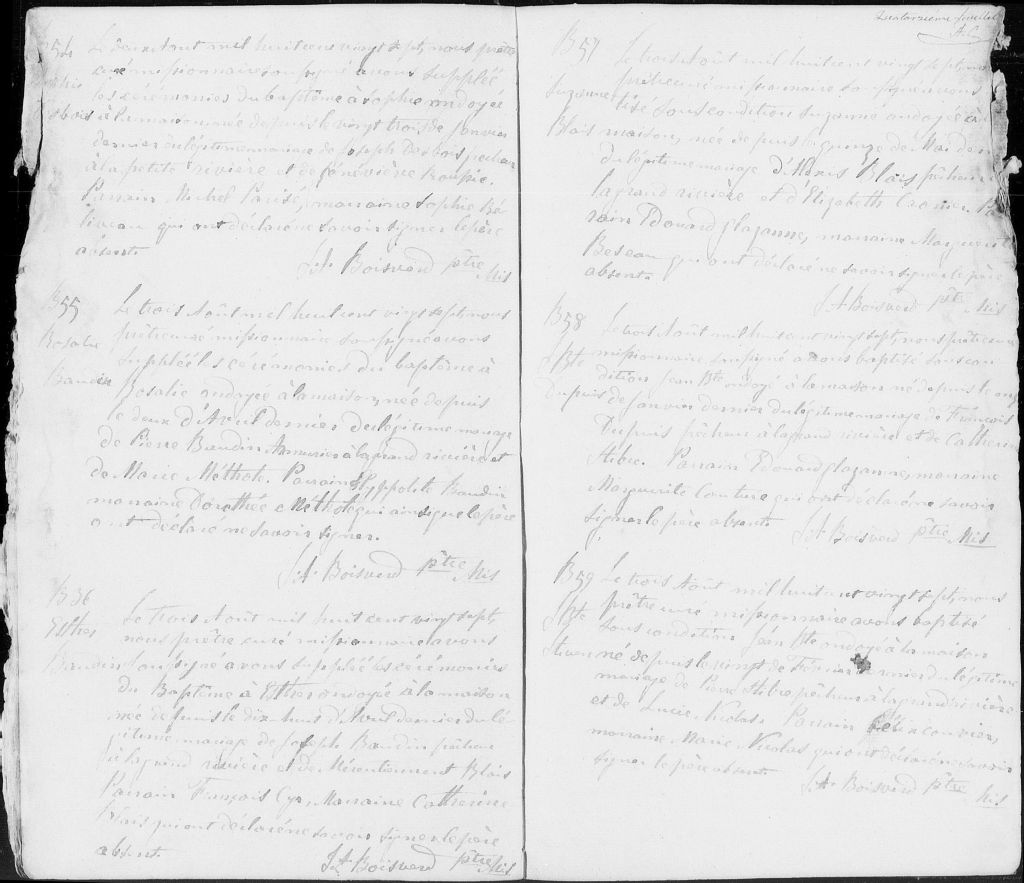 Le deux Août mil huit cens vingt sept, nous prêtre
curé missionnaire soussigné avons suppléé
les cérémonies du baptême à Sophie ondoyée
à la maison née depuis le vingt trois de Janvier
dernier du légitime mariage de Joseph Desbois pecheur
à la petite rivière et de Génévière
Parrain Michel Parisé, marraine Sophie Bé-
liveau qui ont déclaré ne savoir signer le père
absent.
J.A. Boisverd ptre Mis
B55
Rosalie
Baudin
Le trois Août mil huit cent vingt sept, nous
prêtre curé missionnaire soussigné avons
suppléé les cérémonies du baptême à
Rosalie ondoyée à la maison, née depuis
le deux d'Avril dernier du légitime mariage
de Pierre Baudin Armurier à la grand rivière et
de Marie Méthote. Parrain Hyppolite Baudin
marraine Dorothée Méthote qui ainsi que le père
ont déclaré ne savoir signer.
J.A. Boisverd ptre Mis
B56
Esther
Baudin
Le trois Août mil huit cent vingt sept,
nous prêtre curé missionnaire avons
soussigné avons suppléé les cérémonies
du Baptême à Esther ondoyée à la maison
née depuis le dix-huit d'Avril dernier du lé-
gitime mariage de Joseph Baudin pêcheur
à la grand rivière et de Blais
Parrain François Cyr, Marraine Catherine
Blais qui ont déclaré ne savoir signer le père
absent.
J.A. Boisverd ptre Mis
Quatorzième feuillet
B57
Suzanne
Blais
Le trois Août mil huit cent vingt sept, nous
prêtre curé missionnaire soussigné avons
tisé sous condition Suzanne ondoyée à la
maison, née depuis le quinze de Mai dern
du légitime mariage d'Alexis Blais pêcheur
la grand rivière et d'Elizabeth Cronier. Pa
rain Edouard Glazanne, marraine Marguerite
Beseau qui ont déclaré ne savoir signer le père
absent.
J.A. Boisverd ptre Mis
B58
J Bte
Dupuis
Le trois Août mil huit cent vingt sept, nous prêtre curé
missionnaire soussigné avons baptisé sous con
dition Jean Bte ondoyé à la maison né depuis le onz
de Janvier dernier du légitime mariage de François
Dupuis pêcheur à la grand rivière et de Catherin
Arbre. Parrain Edouard Glazanne, marraine
Marguerite Couture qui ont déclaré ne savoir
signer le père absent.
J.A. Boisverd ptre Mis
B59
J Bte
Le trois Août mil huit cent vingt sept, nous
prêtre curé missionnaire avons baptisé
sous condition Jean Bte ondoyé à la maison
né depuis le vingt de Février dernier du légitime
mariage de Pierre Arbre, pêcheur à la grand rivière
et de Lucie Nicolas. Parrain Félix
marraine Marie Nicolas qui ont déclaré ne savoir
signer le père absent.
J.A. Boisverd ptre
Mis